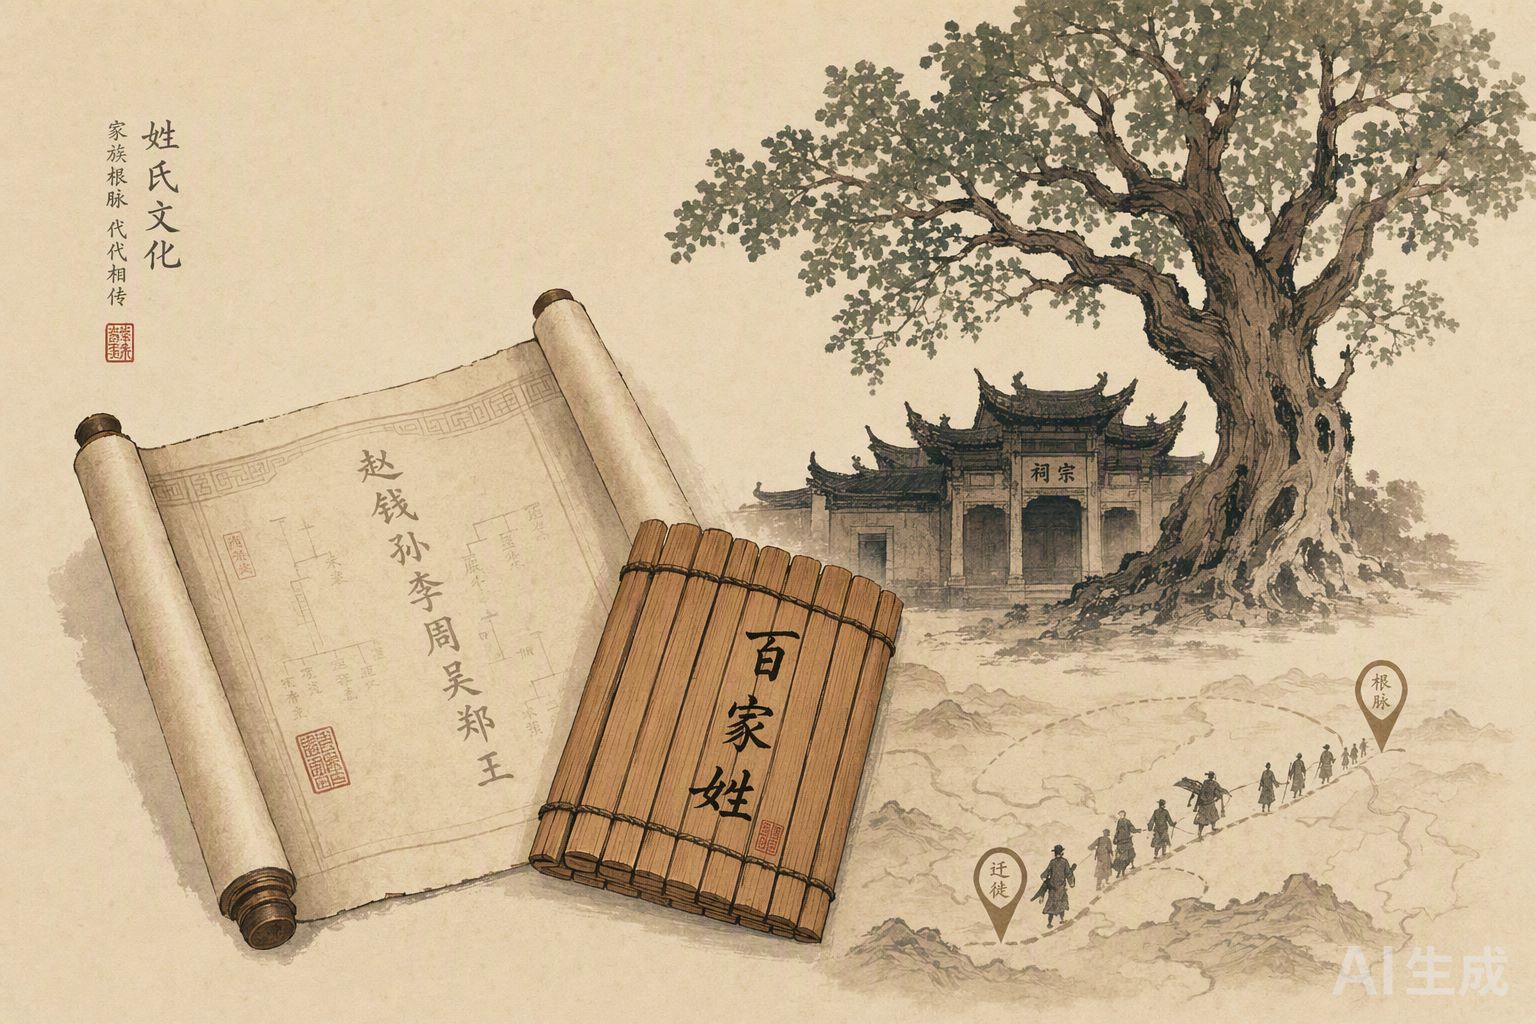 姓氏文化
家族根脉 代代相传
赵钱孙李周吴郑王
百家姓
祠宗
根脉
迁徙
AI生成